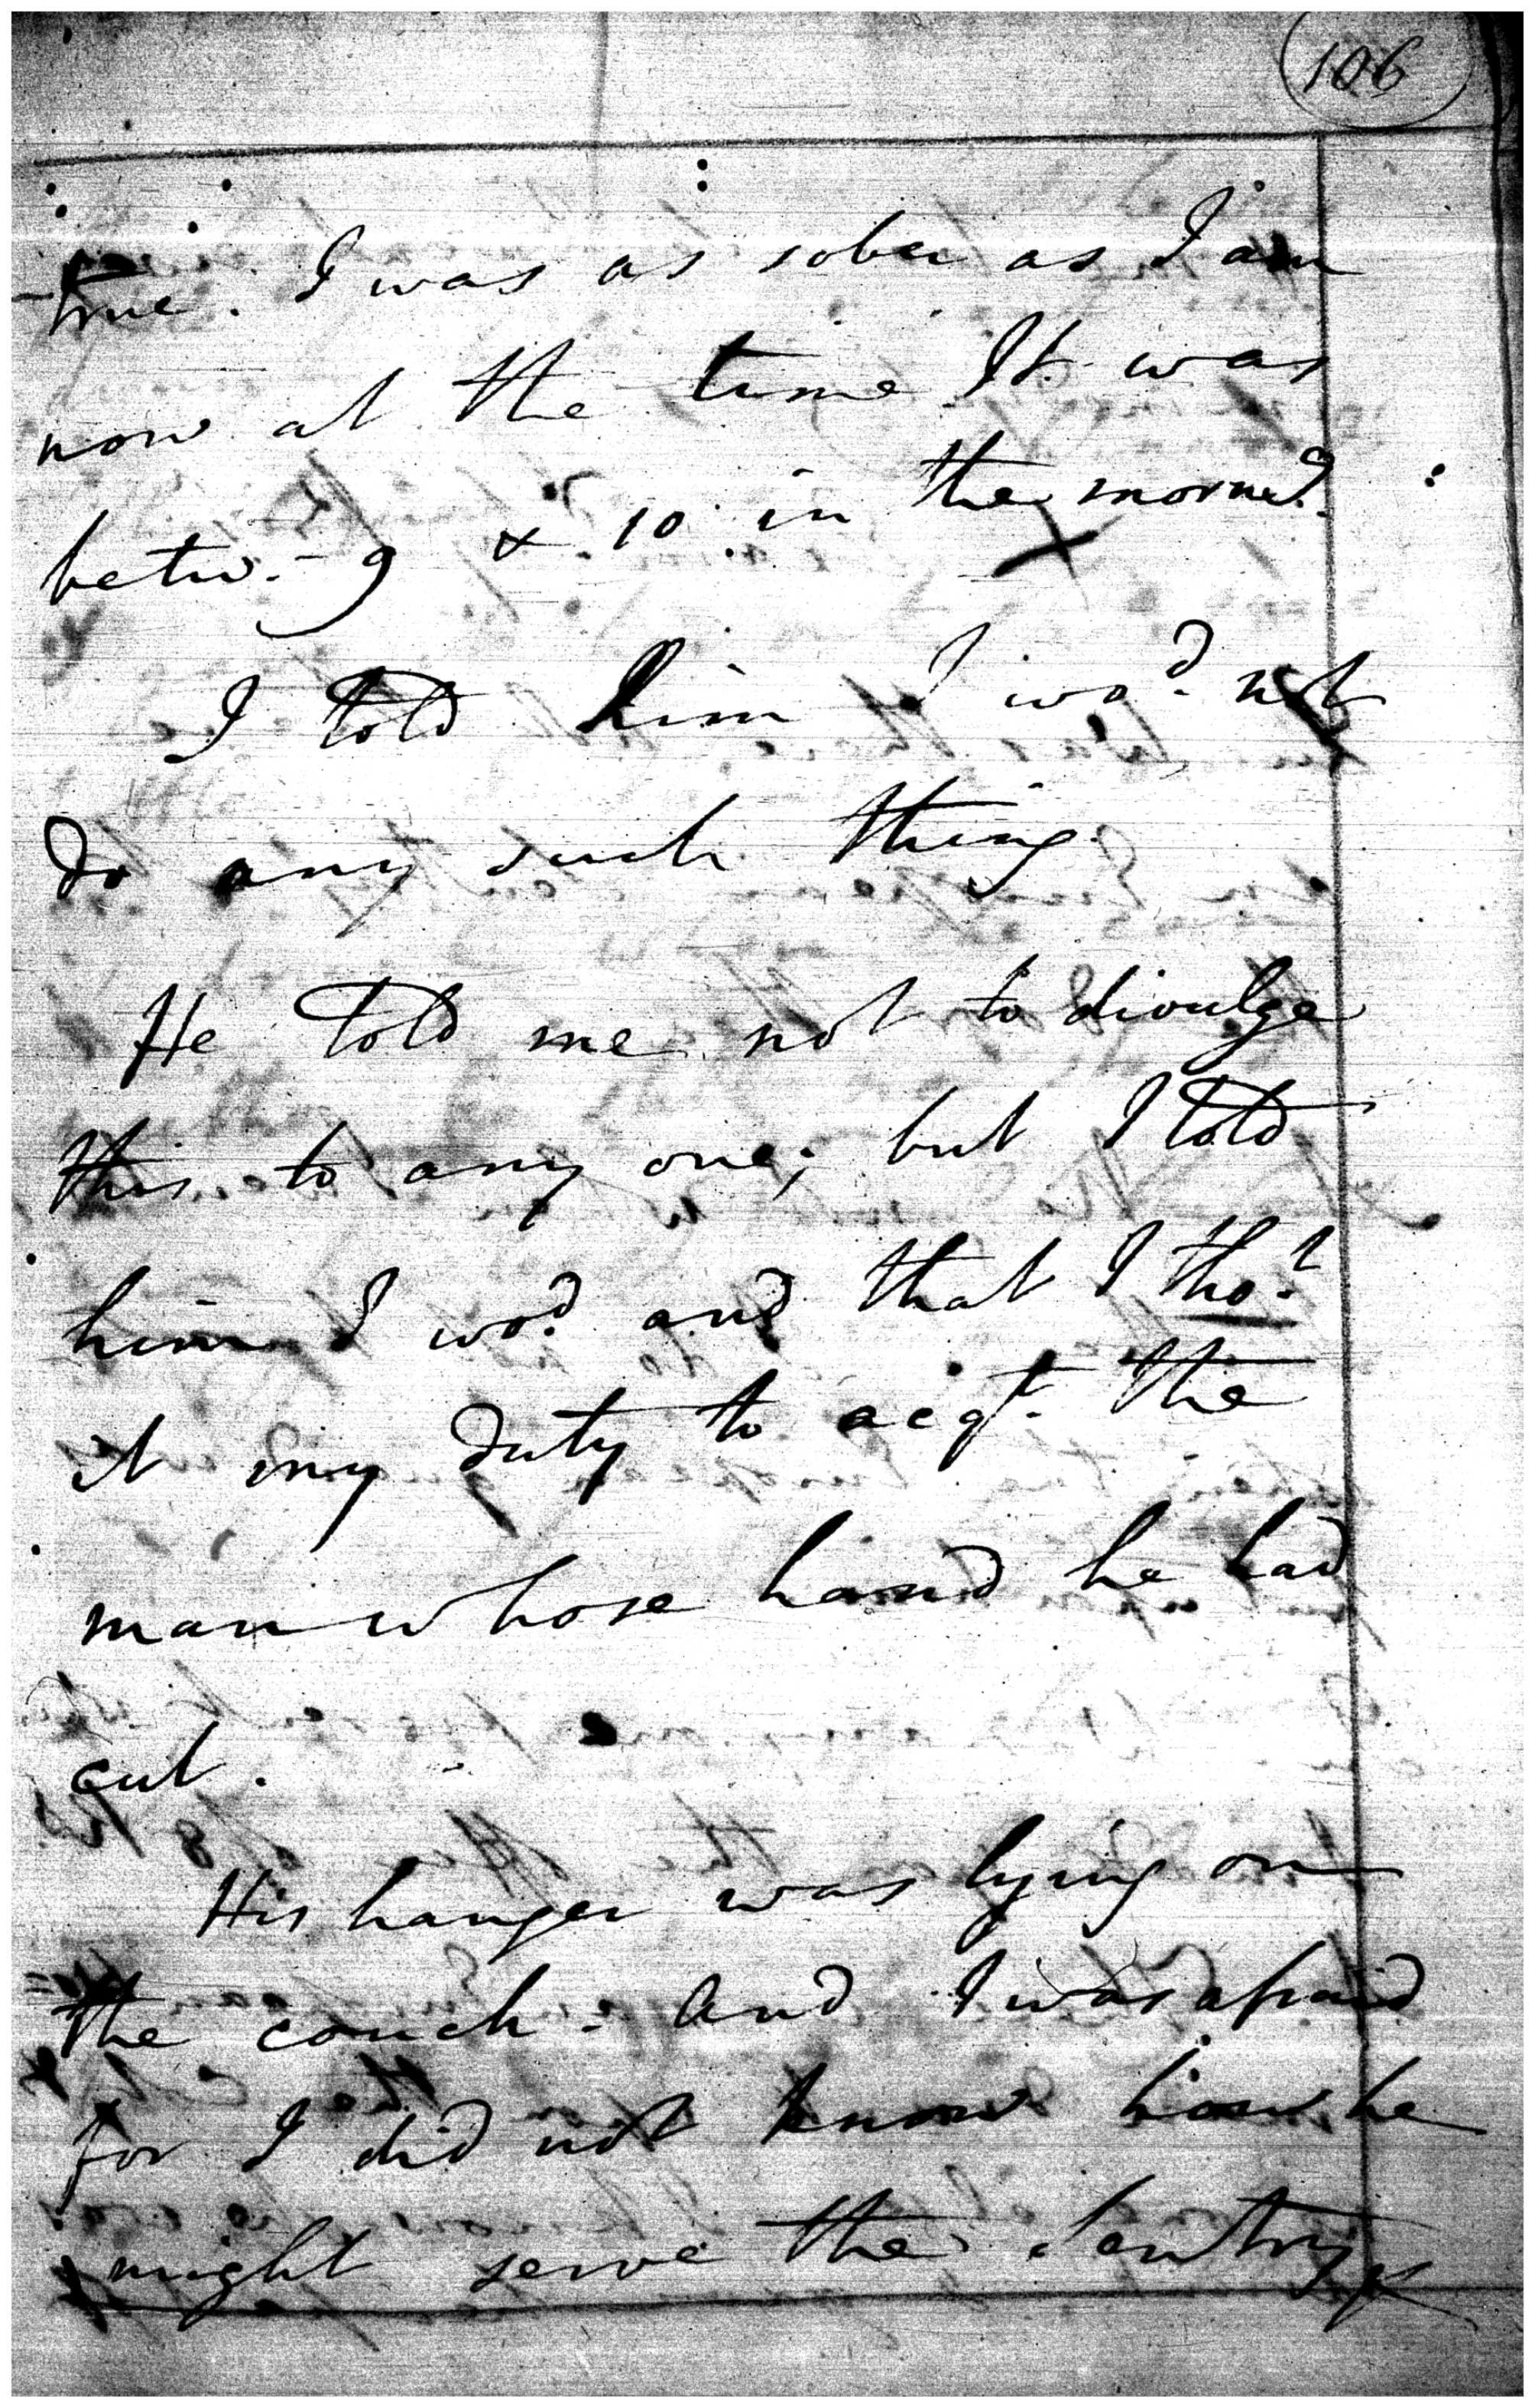 106
true. I was as sober as I am
now at the time It was
betw. 9 & 10 in the morng.
I told him I wod. not
do any such thing
He told me not to divulge
this to any one; but I told
him I wod. and that I thot.
it my duty to acqt. the
man whose hand he had
cut.
His hanger was lying on
the couch - And I was afraid
for I did not know how he
might serve the Sentry